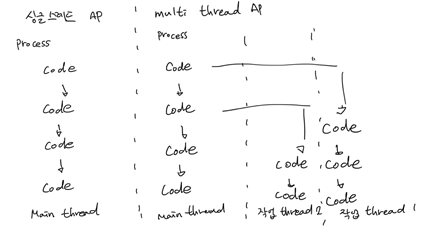 싱글스레드 AP
multi thread AP
Process
Process
Code
Code
Code
Code
Code
Code
Code
Code
Code
Code
Code
code
Code
Code
Main thread
Main thread
작업 thread 2
작업 thread 1